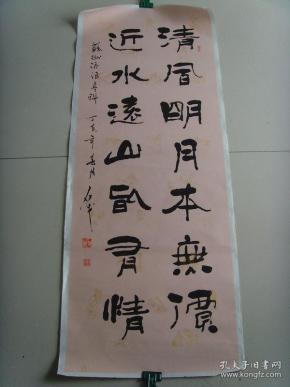 清風明月本無價
近水遠山皆有情
蘇州滄浪亭聯 丁亥年春月
孔夫子旧书网